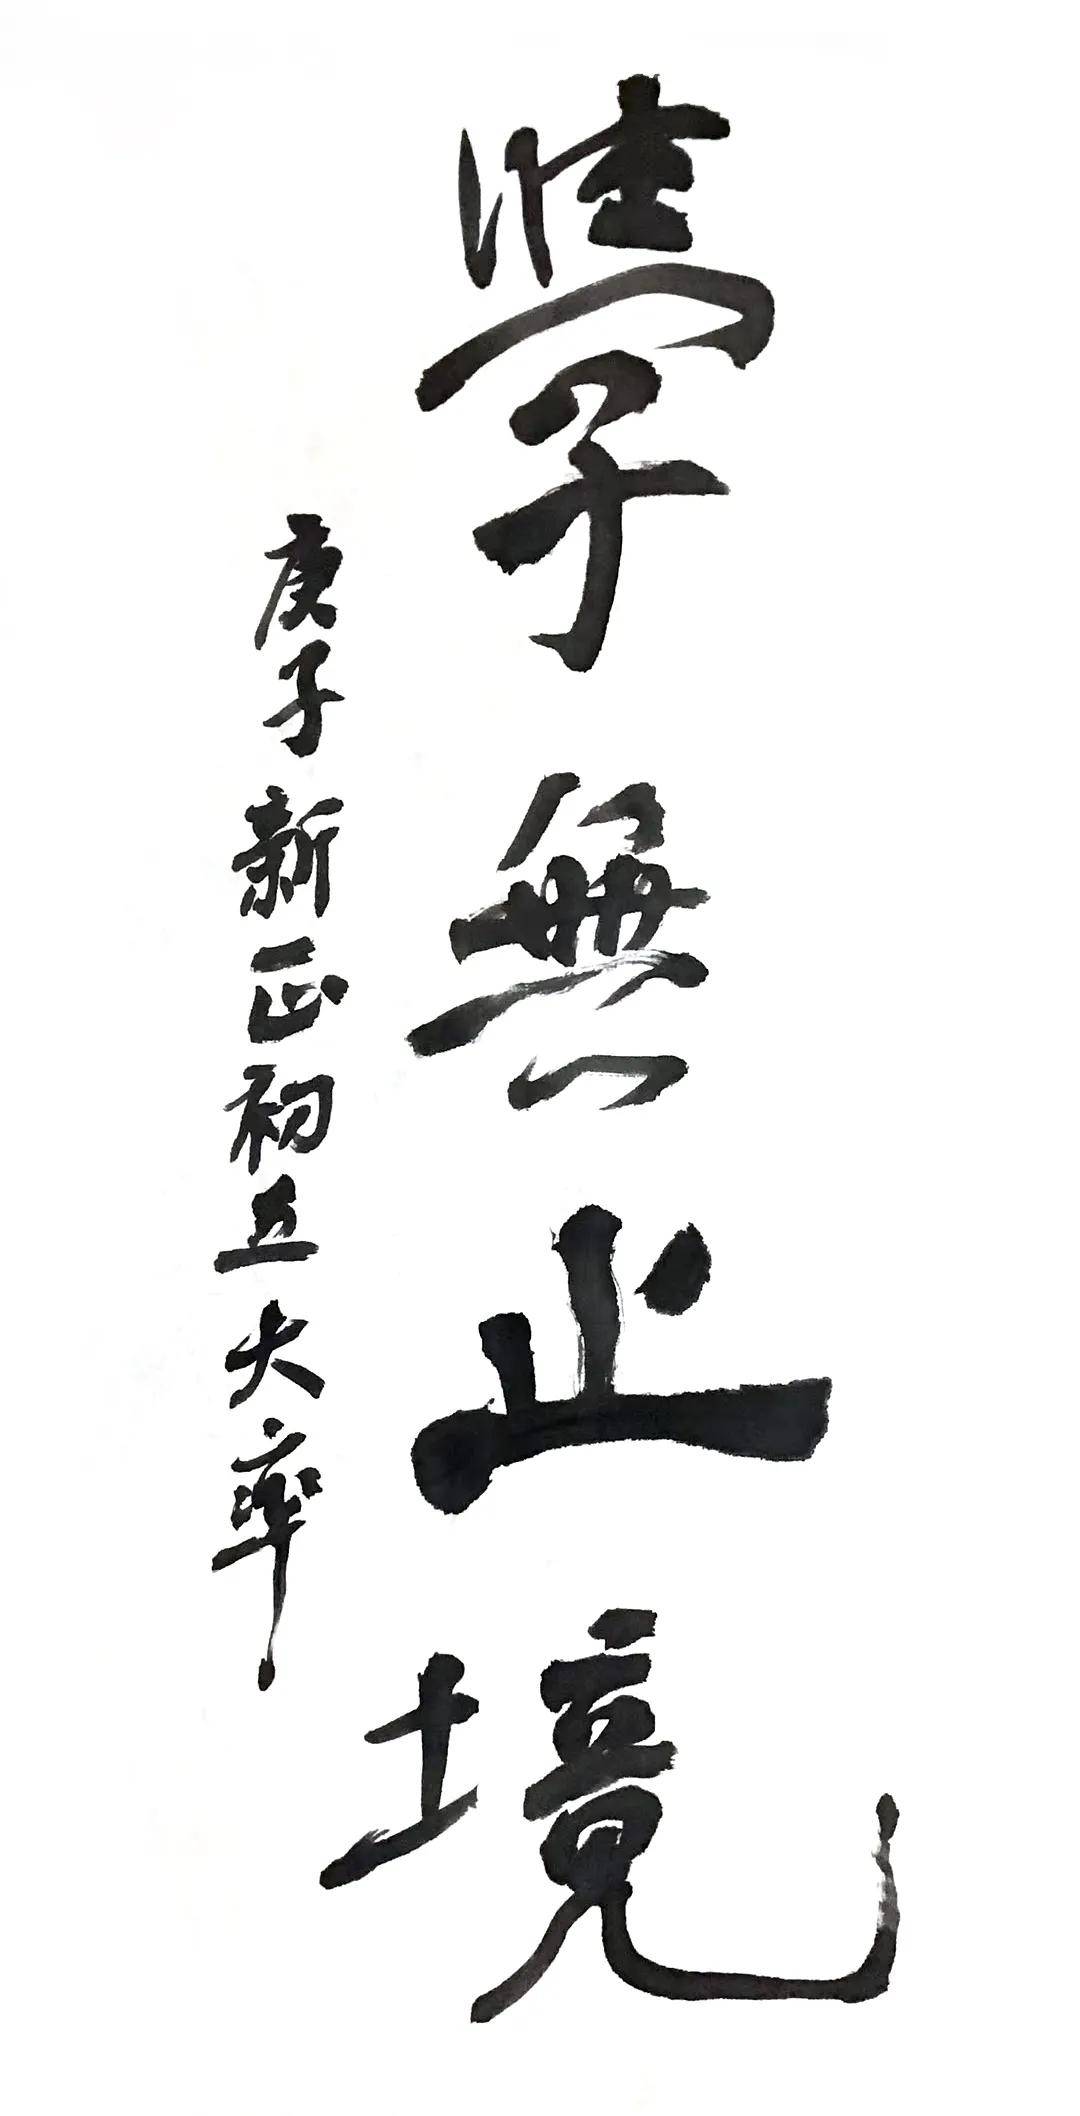 學無止境
庚子新正初五大率